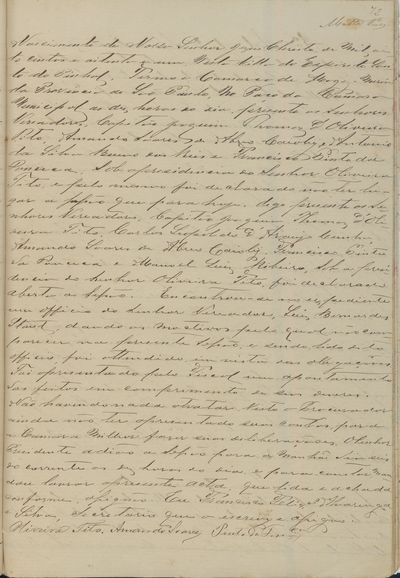 72
Nascimento de Nosso Senhor Jesus Christo de Mil oito
centos e oitenta e um, nesta Villa do Espirito San
to do Pinhal, Termo e Comarca de Mogy Mirim
da Provincia de São Paulo, no Paço da Camara
Municipal as dez horas do dia, presente os senhores
Vereadores, Capitão Joaquim Thomaz d'Oliveira
Tito, Amando Soares de Abreu Caiuby, Antonio
da Silva Bueno e Francisco Pinto da
Fonseca. Sob a presidencia do Senhor Oliveira
Tito, e pelo mesmo foi declarado não ter lu
gar a sessão que para hoje. Digo presente os Se
nhores Vereadores, Capitão Joaquim Thomaz d'Oli
veira Tito, Carlos Leopoldo d'Araujo Cunha,
Amando Soares de Abreu Caiuby, Francisco Pinto
da Fonseca e Manoel Luiz Ribeiro, sob a presi
dencia do Senhor Oliveira Tito, foi declarado
aberta a Sessão. Encontrou-se no expediente
um officio do Senhor Vereador, Luiz Bernardes
dando os motivos pelo qual não com
parecer na presente Sessão, e sendo lido o dito
officio, foi attendido em vista das obrigações
Foi apresentado pelo Fiscal um apontamento
das feitos em comprimento de seus deveres.
Não havendo nada a tratar visto o Procurador
ainda não ter apresentado suas contas, para
a Camara Milhor fazer suas deliberações, O Senhor
Presidente adiou a Sessão para de manhã vinte seis
do corrente as dez horas do dia e para constar man
dou lavrar a presente Acta, que lida e achada
conforme, assignão. Eu Francisco Felix
e Silva, Secretario que a escrevi e assigno.
Oliveira Tito, Amando Soares, Pinto da Fonseca